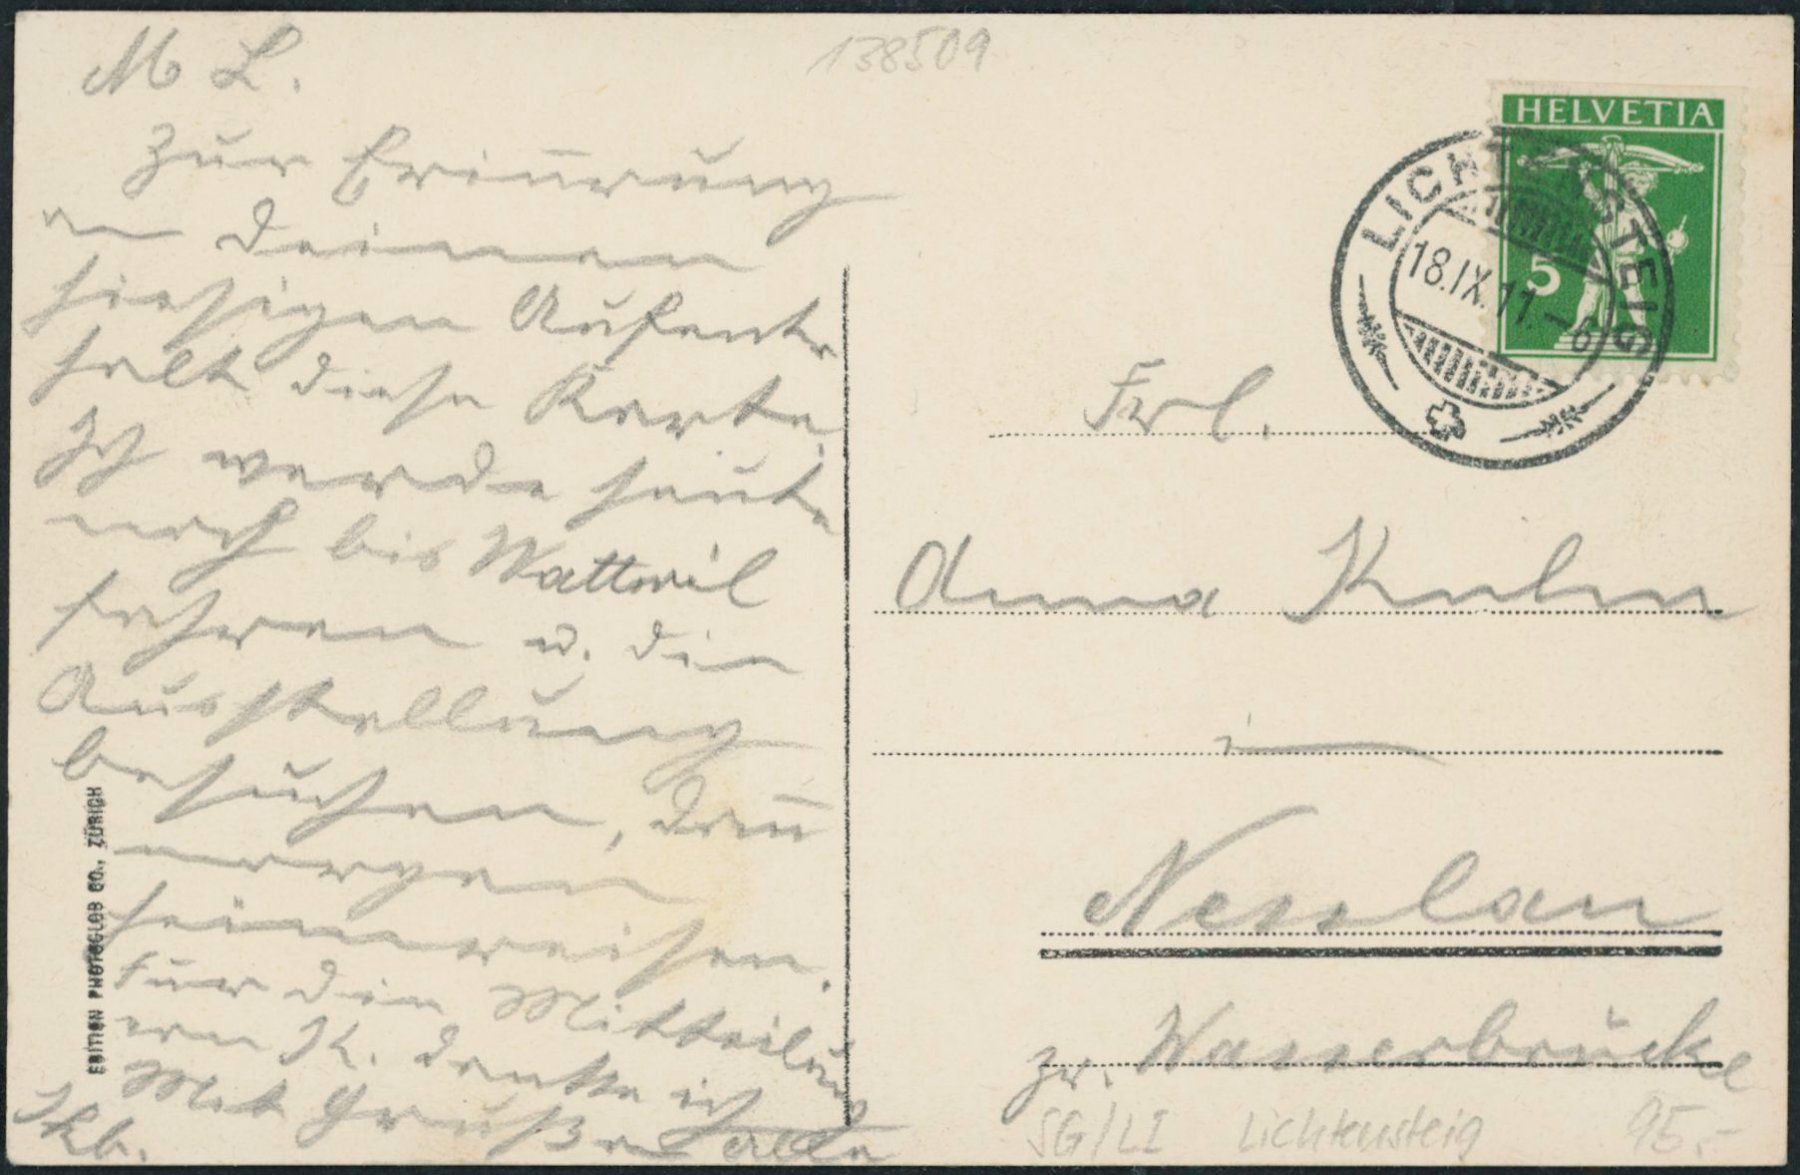 138509
M L.
Zur Erinnerung
an Deinen
hiesigen Aufent
halt diese Karte.
Ich werde heute
noch bis Wattwil
fahren u. die
Ausstellung
besuchen, dann
morgen
heimreisen.
Für die Mitteilung
K. danke ich
Mit Grüßen
HELVETIA
5
LICHTENSTEIG
18.IX.11.
Frl.
Anna Kuhn
in
Nesslau
zr. Wasserbrücke
SG/LI Lichtensteig 95.-
EDITION PHOTOGLOB CO., ZÜRICH